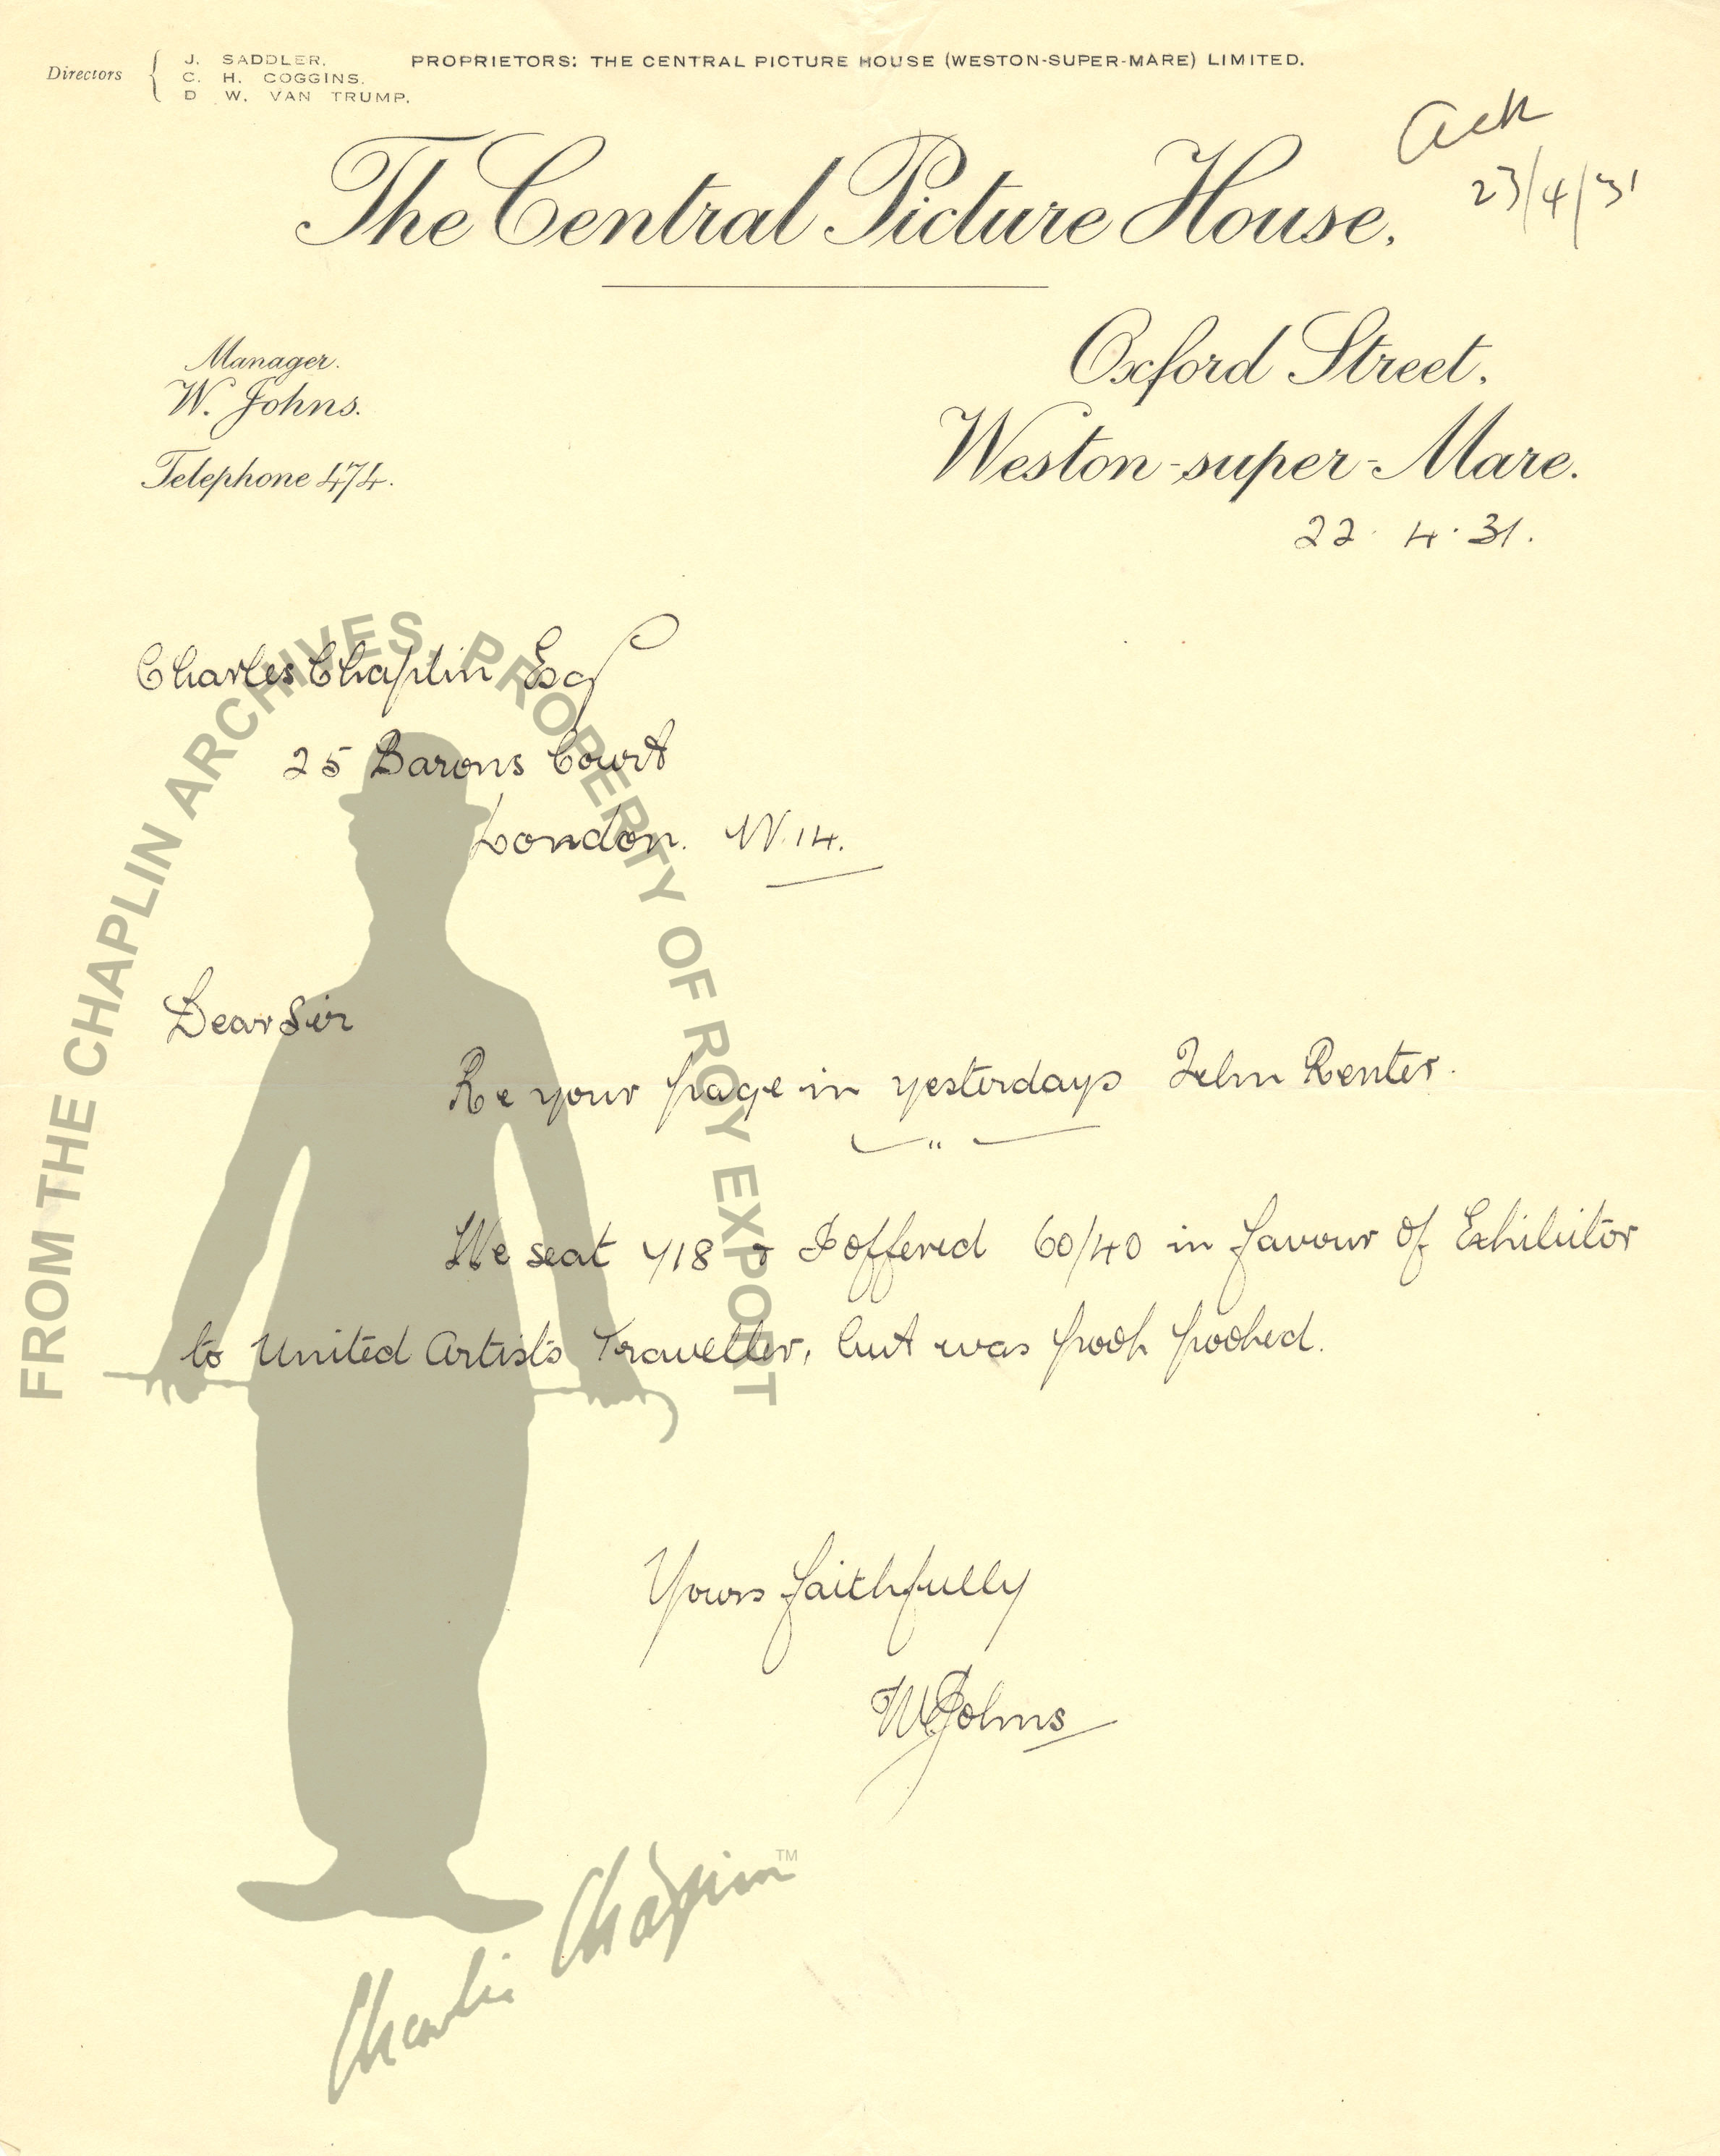 Directors
J. SADDLER.
C. H. COGGINS.
D W. VAN TRUMP.
PROPRIETORS: THE CENTRAL PICTURE HOUSE (WESTON-SUPER-MARE) LIMITED.
Ack
23/4/31
The Central Picture House.
Manager.
W. Johns.
Telephone 474.
Oxford Street.
Weston-super-Mare.
22.4.31.
Charles Chaplin Esq
25 Barons Court
London. W.14.
Dear Sir
Re your page in yesterdays Film Renter.
"
We seat 718 & I offered 60/40 in favour of Exhibitor
to United Artists Traveller, but was pooh poohed.
Yours faithfully
W Johns
FROM THE CHAPLIN ARCHIVES, PROPERTY OF ROY EXPORT
Charlie Chaplin™